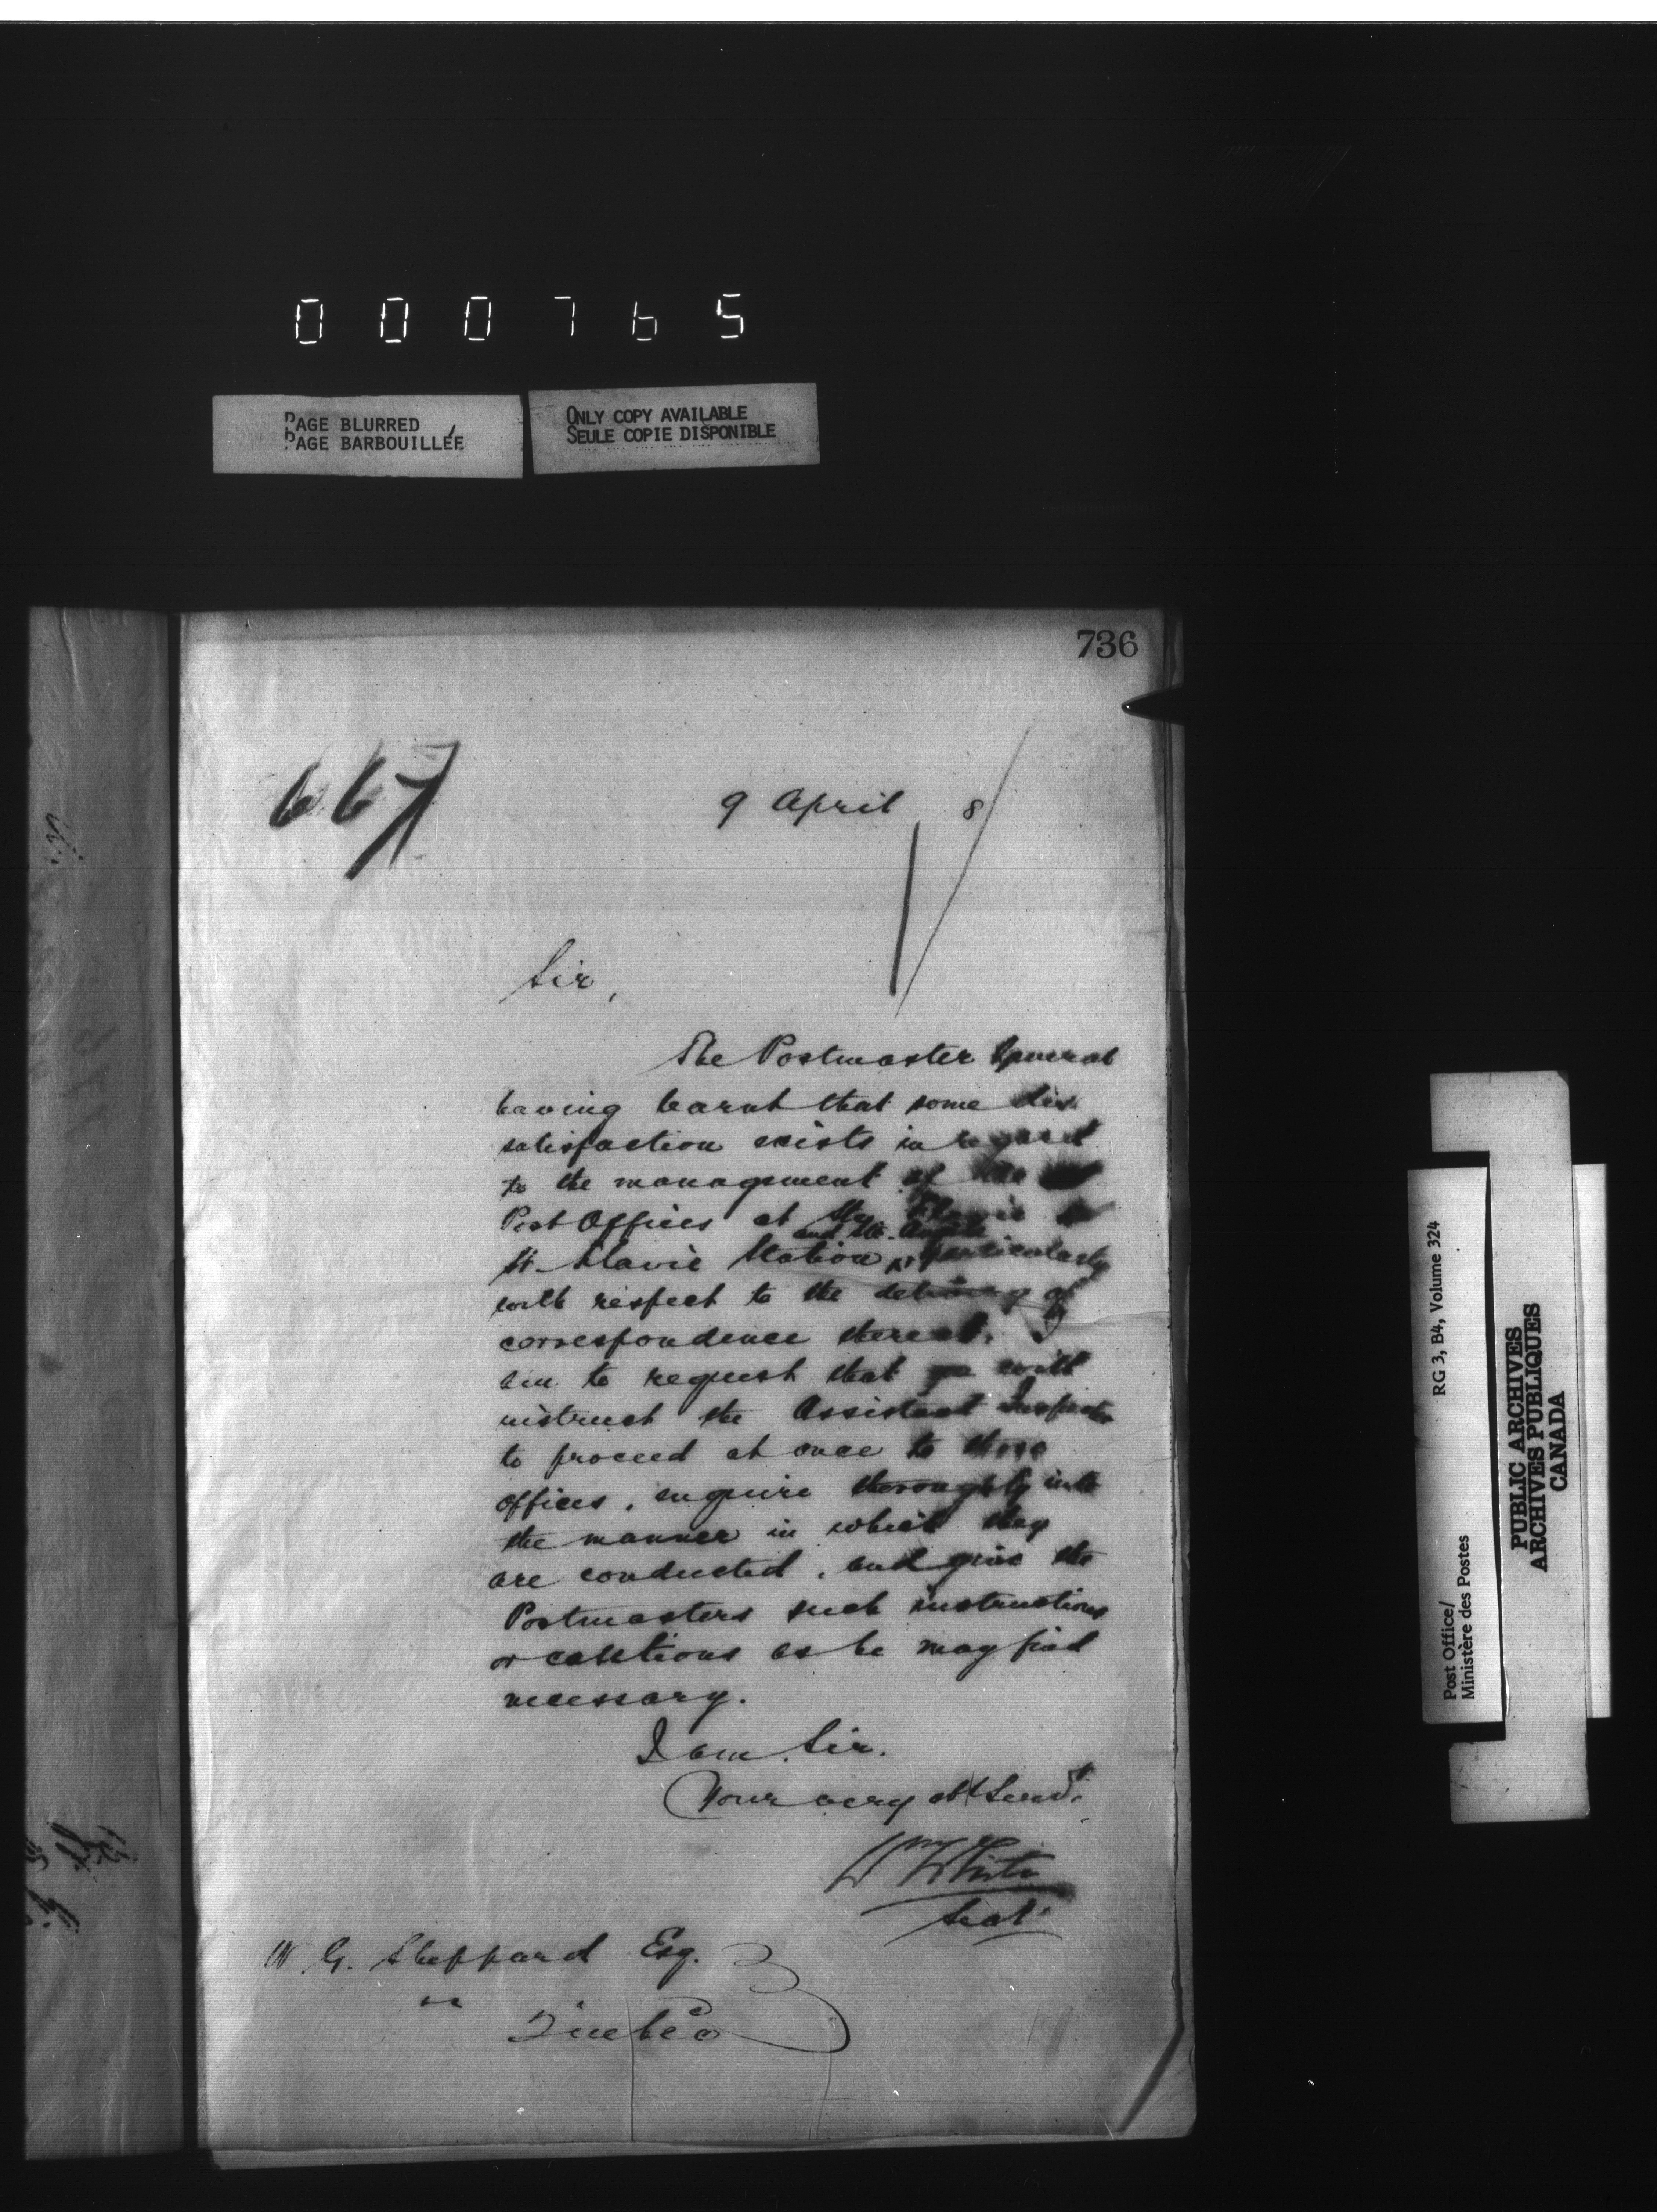 000765
PAGE BLURRED
PAGE BARBOUILLÉE
ONLY COPY AVAILABLE
SEULE COPIE DISPONIBLE
736
667
9 April 8
Sir,
The Postmaster General
having learnt that some dis
satisfaction exists in regard
to the management of the
Post Offices at Ste Flavie
and Ste.
St. Flavie Station, particularly
with respect to the delivery of
correspondence thereat. I
am to request that you will
instruct the Assistant Inspector
to proceed at once to those
offices, enquire thoroughly into
the manner in which they
are conducted, and give the
Postmasters such instructions
or cautions as he may find
necessary.
I am, Sir,
Your very obt Servt.
Wm White
Sect.
W. G. Sheppard Esq.
Quebec
Post Office/
Ministère des Postes
RG 3, B4, Volume 324
PUBLIC ARCHIVES
ARCHIVES PUBLIQUES
CANADA